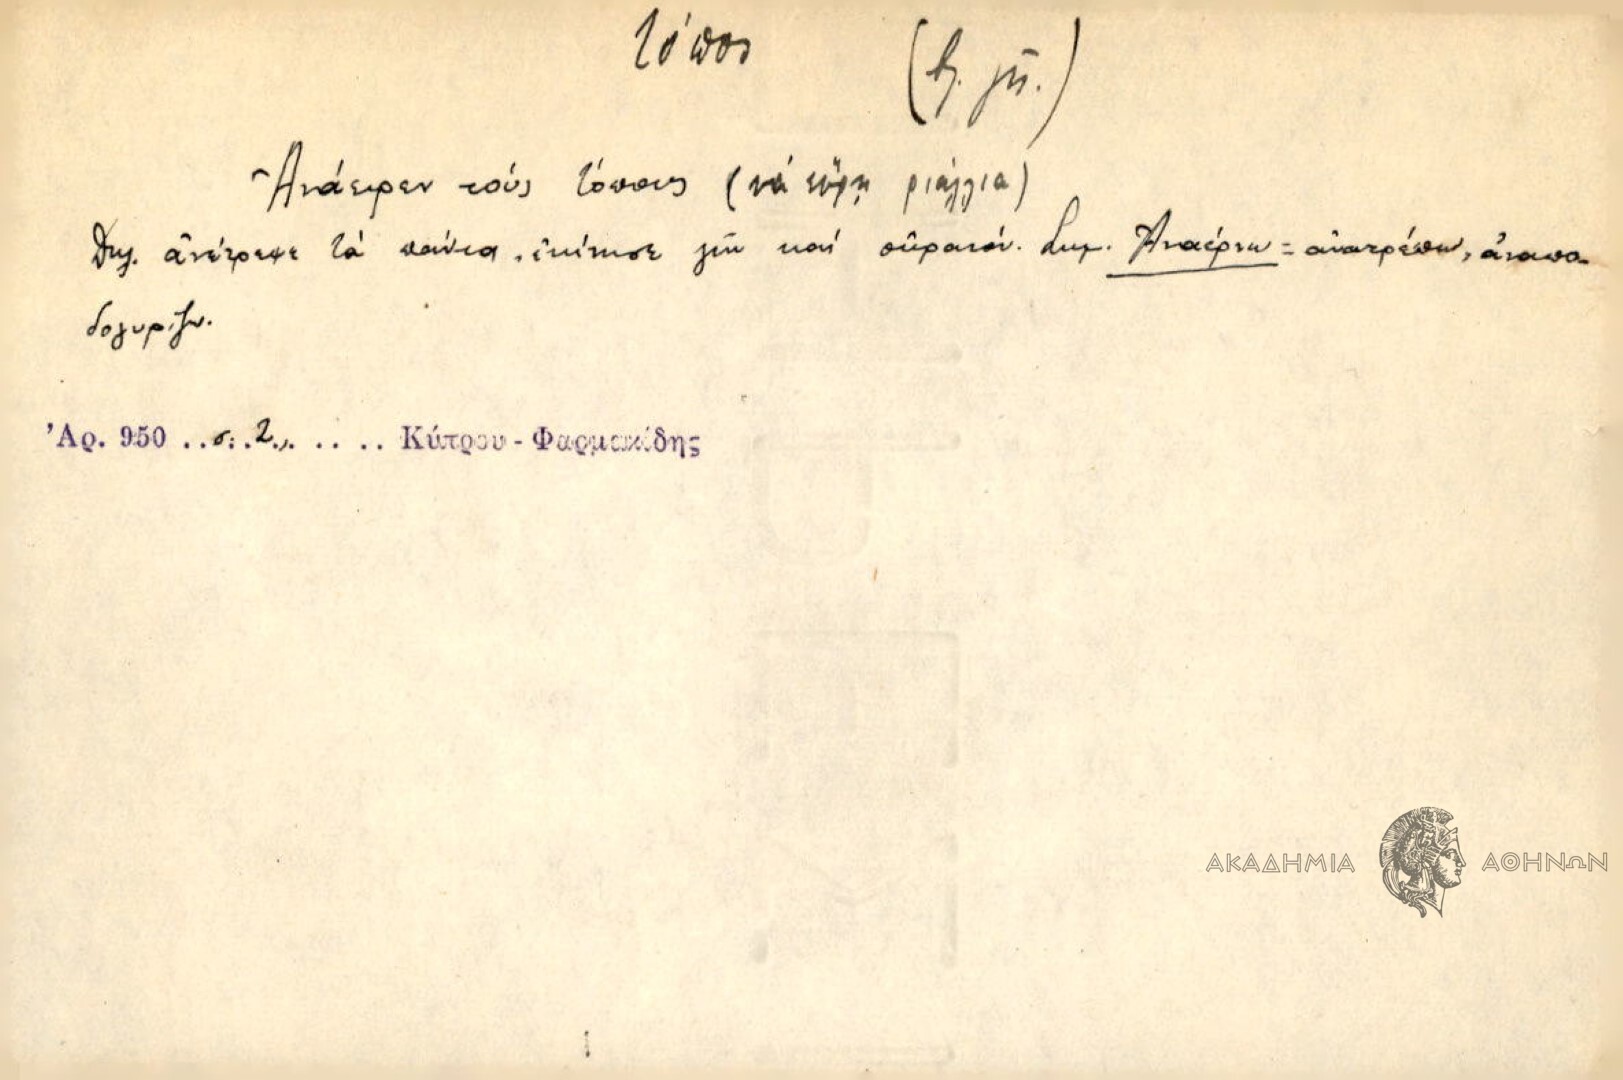 τόπος (βλ. γῆ.)
Ἀνάειρεν τοὺς τόπους (νὰ εὕρῃ ριάλλια)
Δηλ. ἀνέτρεψε τὰ πάντα, ἐκίνησε γῆν καὶ οὐρανόν. Σημ. Ἀναέρνω = ἀνατρέπω, ἀναπο-
δογυρίζω.
Ἀρ. 950 ..σ. 2.. .. .. Κύπρου - Φαρμακίδης
ΑΚΑΔΗΜΙΑ ΑΘΗΝΩΝ